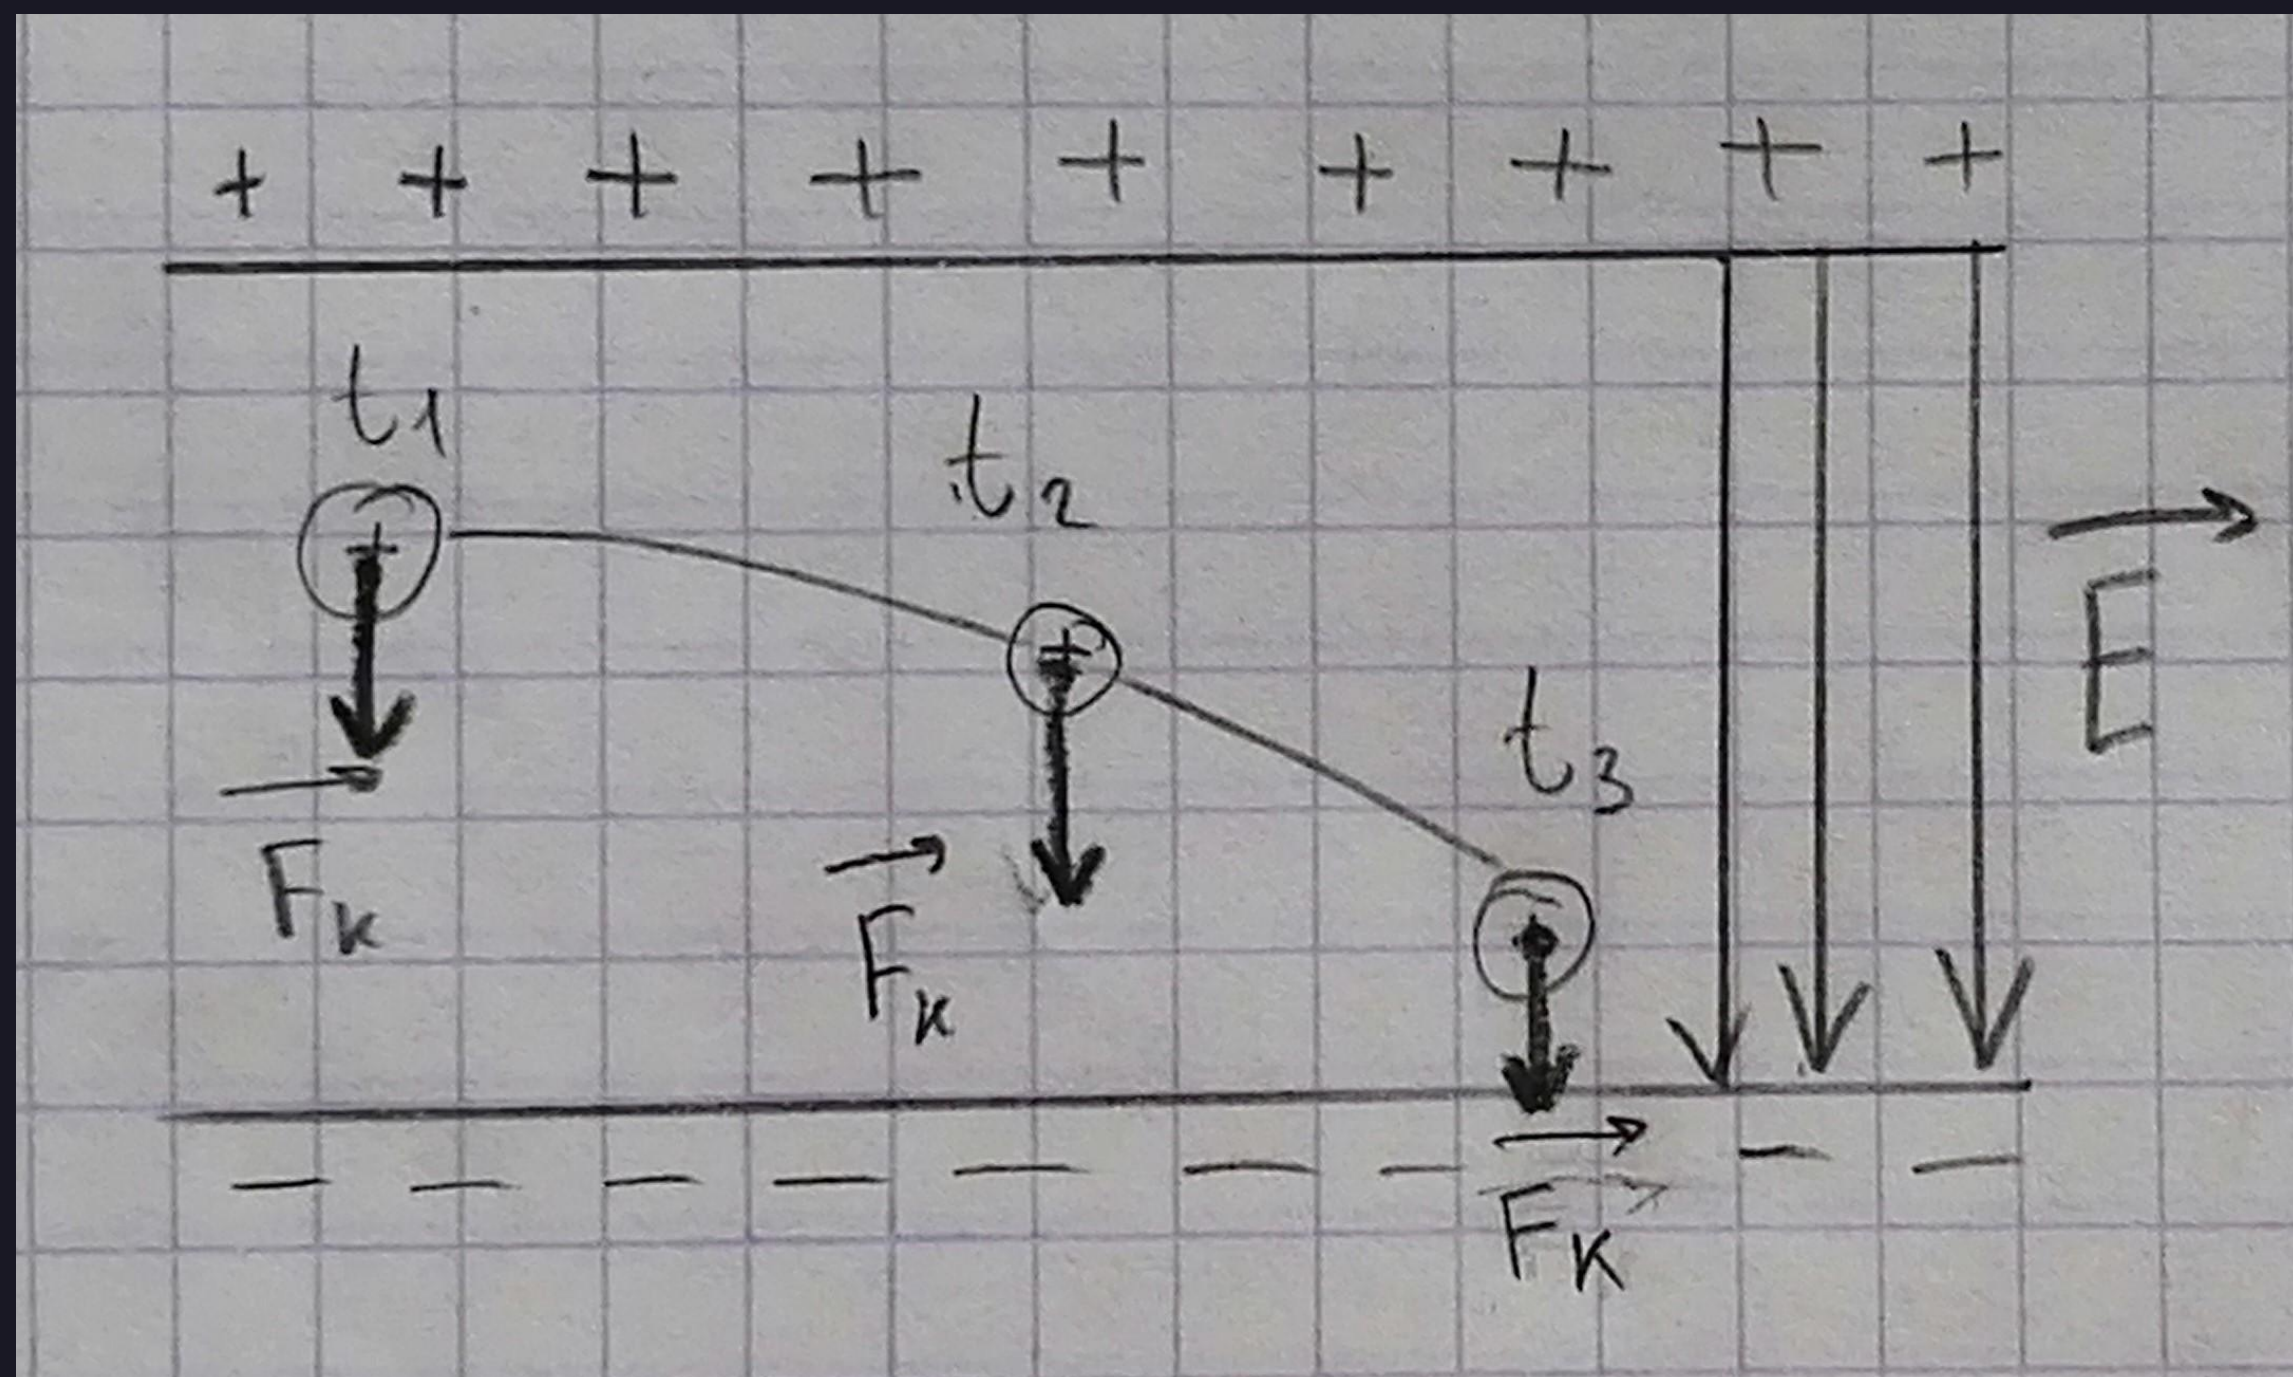 + + + + + + + + +
t₁
t₂
E
t₃
F_K
F_K
− − − − − − − − −
F_K